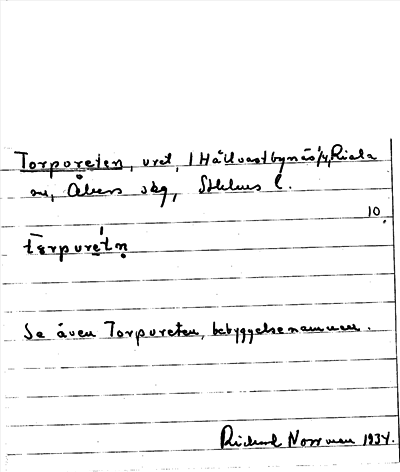 Torpureten, uret, 1 Hållvastbynäs 1/4, Riala
sn, Åkers skg, Sthlms l.
10.
tɛrpurétṇ
Se även Torpureten, bebyggelsenamnen.
Richard Norrman 1934.